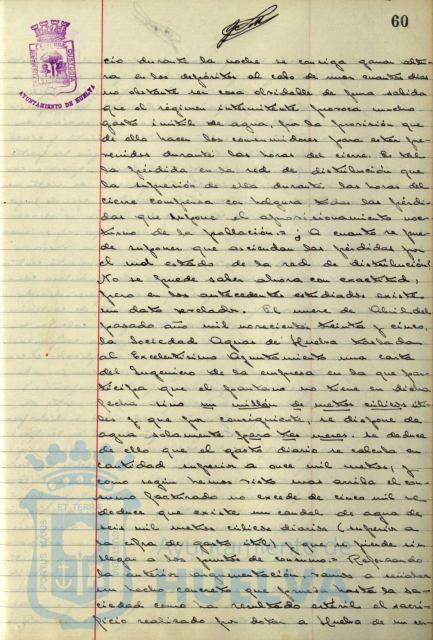 60
AYUNTAMIENTO DE HUELVA
cio durante la noche se consiga ganar altu-
ra en los depósitos al cabo de unos cuantos dias
no obstante ser cosa olvidable de puro salida
que el régimen intermitente provoca mucho
gasto inútil de agua, por la provisión que
de ella hacen los consumidores para estar pre-
venidos durante las horas del cierre. Es tal
la pérdida en la red de distribución que
la supresión de ella durante las horas del
cierre compensa con holgura todas las pérdi-
das que supone el aprovisionamiento noc-
turno de la población. = ¿A cuanto se pue-
de suponer que asciendan las pérdidas por
el mal estado de la red de distribución?
No se puede saber ahora con exactitud,
pero en los antecedentes estudiados existe
un dato revelador. El nueve de Abril del
pasado año mil novecientos treinta y cinco,
la Sociedad Aguas de Huelva traslada
al Excelentísimo Ayuntamiento una carta
del Ingeniero de la empresa en la que par-
ticipa que el pantano no tiene en dicha
fecha sino un millón de metros cúbicos úti-
les y que por consiguiente, se dispone de
agua solamente para tres meses. se deduce
de ello que el gasto diario se calcula en
cantidad superior a once mil metros, y
como según hemos visto mas arriba el con-
sumo facturado no excede de cinco mil se
deduce que existe un caudal de agua de
seis mil metros cúbicos diarios (superior a
la cifra de gasto útil) que se pierde sin
llegar a los puntos de consumo = Reforzando
la anterior argumentación vamos a señalar
un hecho concreto que prueba hasta la sa-
ciedad como ha resultado estéril el sacri-
ficio realizado por dotar a Huelva de un ser-
PORTUS MARIS
ET TERRAE
Ayuntamiento de
HUELVA